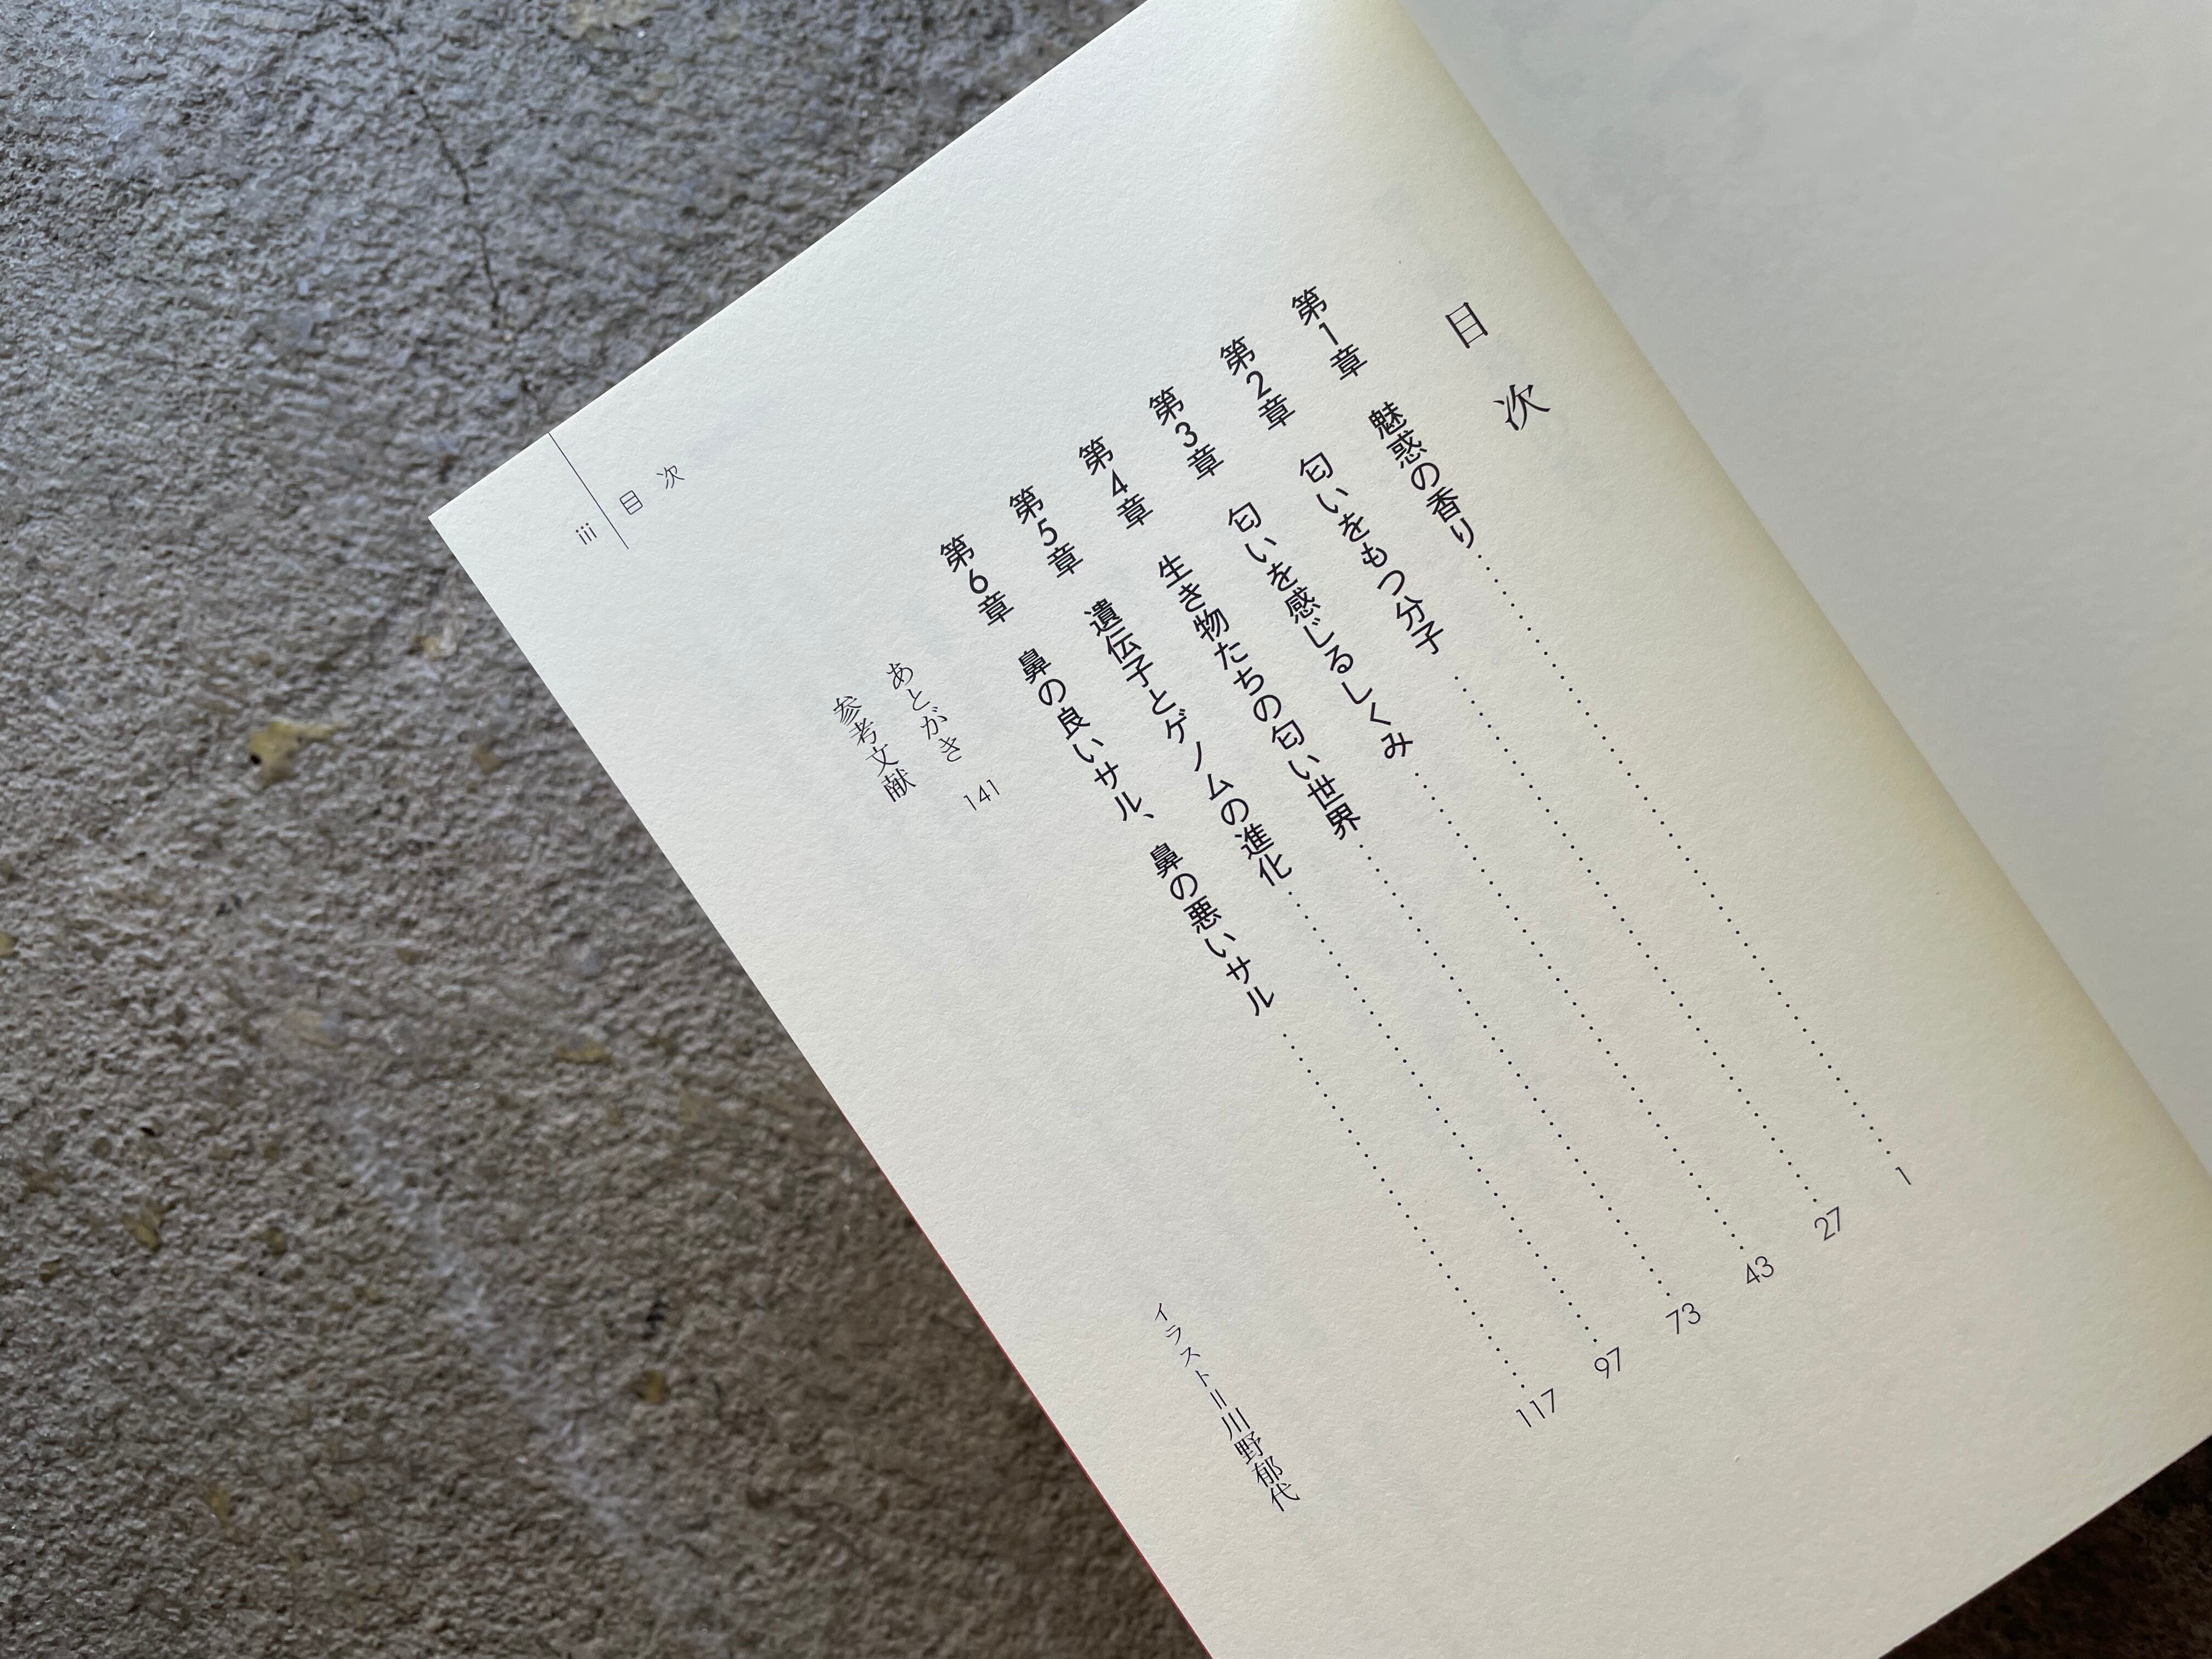 目次
第1章 魅惑の香り 1
第2章 匂いをもつ分子 27
第3章 匂いを感じるしくみ 43
第4章 生き物たちの匂い世界 73
第5章 遺伝子とゲノムの進化 97
第6章 鼻の良いサル、鼻の悪いサル 117
あとがき 141
参考文献
イラスト=川野郁代
目次
iii